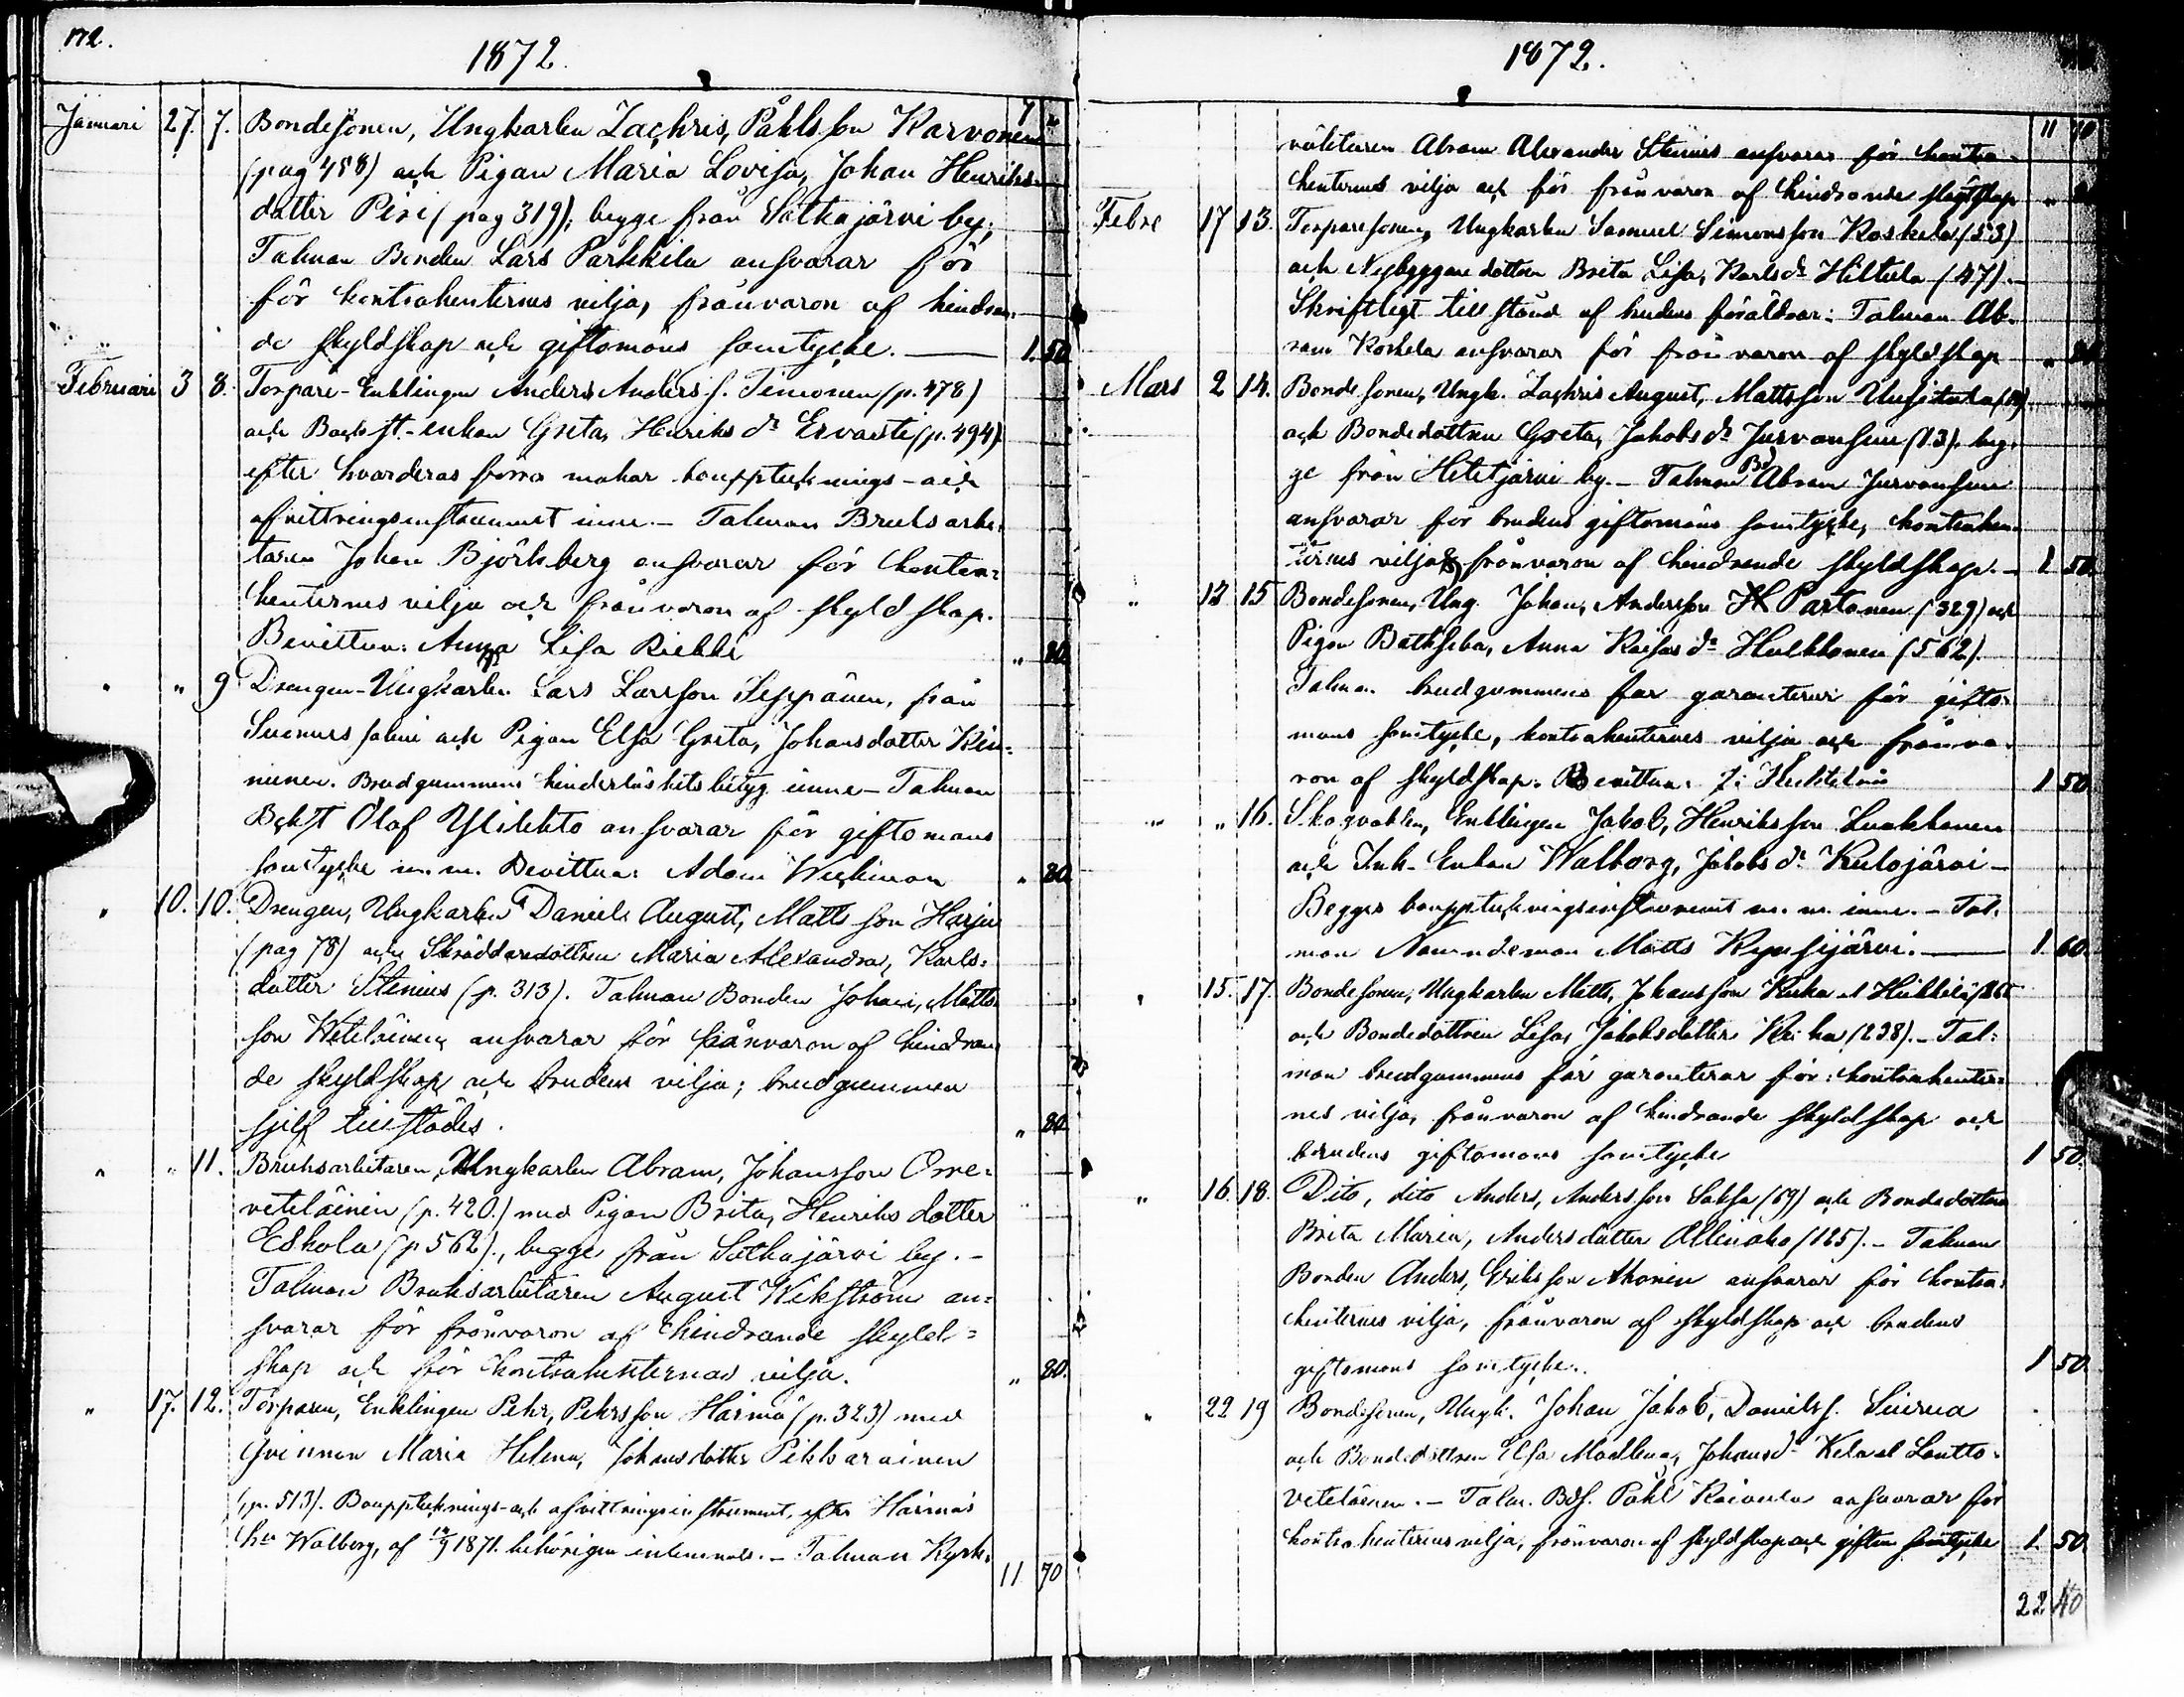 172.
1872.
7
Januari 27. 7. Bondesonen, Ungkarlen Zachris, Påhlsson Karvonen
(pag 458) och Pigan Maria Lovisa, Johan Henriks-
dotter Piri (pag 319), begge från Sotkajärvi by;
Talman Bonden Lars Parkkila ansvarar för
för kontrahenternes vilja, frånvaron af hindran-
de skyldskap och giftomans samtycke. — 1. 50
Februari 3 8. Torpare-Enklingen Anders Anders s. Timonen (p. 478)
och Backst.-enkan Greta, Henriks dr Ervasti (p. 494)
efter hvarderas förra makar boupptecknings- och
afvittringsinstrument inne. — Talman Bruksarbe-
taren Johan Björkberg ansvarar för kontra-
henternes vilja och frånvaron af skyldskap.
Bevittna: Anna Lisa Riekki „ 80
„ „ 9 Drengen-Ungkarlen Lars Larsson Seppänen, från
Suomussalmi och Pigan Elsa Greta, Johansdotter Kin-
nunen. Brudgummens hinderlöshetsbetyg inne — Talman
Bckst Olof Ylilehto ansvarar för giftomans
samtycke m.m. Bevittna: Adam Wichman „ 80
„ 10. 10. Drengen, Ungkarlen Daniel August, Matts son Harju
(pag 78) och Skräddaredottren Maria Alexandra, Karls-
dotter Stenius (p. 313). Talman Bonden Johan, Matts-
son Weteläinen ansvarar för frånvaron af hindran-
de skyldskap och brudens vilja; brudgummen
sjelf tillstädes. „ 80
„ „ 11. Bruksarbetaren, Ungkarlen Abram, Johansson Orre-
veteläinen (p. 420.) med Pigan Brita, Henriks dotter
Eskola (p 562)., begge från Sotkajärvi by. —
Talman Bruksarbetaren August Wikström an-
svarar för frånvaron af hindrande skyld-
skap och för kontrahenternas vilja. „ 80.
„ 17. 12. Torparen, Enklingen Pehr, Pehrsson Härmä (p. 323) med
Qvinnan Maria Helena, Johansdotter Pikkarainen
(p. 513). Boupptecknings- och afvittringsinstrument, efter Härmäs
hu Walborg, af 1871. behörigen inlemnade. — Talman Kyrk-
11 70
1872.
11 70
väktaren Abram Alexander Stenius ansvarar för kontra-
henternes vilja och för frånvaron af hindrande slägtskap „ 80
Febre 17 13. Torparesonen, Ungkarlen Samuel Simonsson Koskela (53)
och Nybyggaredottren Brita Lisa, Karls dr Hiltula (47). —
Skriftligt tillstånd af brudens föräldrar: Talman Ab-
ram Koskela ansvarar för frånvaron af skyldskap „ 80
Mars 2 14. Bonde sonen, Ungk. Zachris August, Mattsson Uusitalo
och Bondedottren Greta, Jakobs dr Jurvansuu (13). beg-
ge från Hetetjärvi by. — Talman Bd Abram Jurvansuu
ansvarar för brudens giftomans samtycke, kontrahen-
ternes vilja & frånvaron af hindrande skyldskap. — 1 50.
„ 12 15 Bondesonen, Ung. Johan, Andersson Partanen (329) och
Pigan Bathseba, Anna Kaisas dr Hulkkonen (562).
Talman brudgummens far garanterar för gifto-
mans samtycke, kontrahenternes vilja och frånva-
ron af skyldskap. Bevittna: 1 50
„ „ 16. Skogvakten, Enklingen Jakob, Henriksson Luukkonen
och Inh. Enkan Walborg, Jakobs dr Kulojärvi —
Begges boupptekningsinstrument m. m. inne. — Tal-
man Nämndeman Matts Rypysjärvi. — 1. 60.
„ 15. 17. Bondesonen, Ungkarlen Matts, Johansson Kuha el Heikkilä
och Bondedottren Lisa, Jakobsdotter Kuha (238). — Tal-
man brudgummens far garanterar för: kontrahenter-
nes vilja, frånvaron af hindrande skyldskap och
brudens giftomans samtycke 1 50.
„ 16. 18. Dito, dito Anders, Anders son Saksa (69) och Bondedottren
Brita Maria, Andersdotter Allinaho (125). — Talman
Bonden Anders, Eriksson Ahonen ansvarar för kontra-
henternes vilja, frånvaron af skyldskap och brudens
giftomans samtycke. 1 50
„ 22 19 Bondesonen, Ungk. Johan Jakob, Daniels s. Siurua
och Bondedottren Elsa Madlena, Johans dr Kela el Lautto-
veteläinen. — Talm. Bds. Påhl Raivala ansvarar för
kontrahenternes vilja, frånvaron af skyldskap och giftom samtycke 1 50
22 40